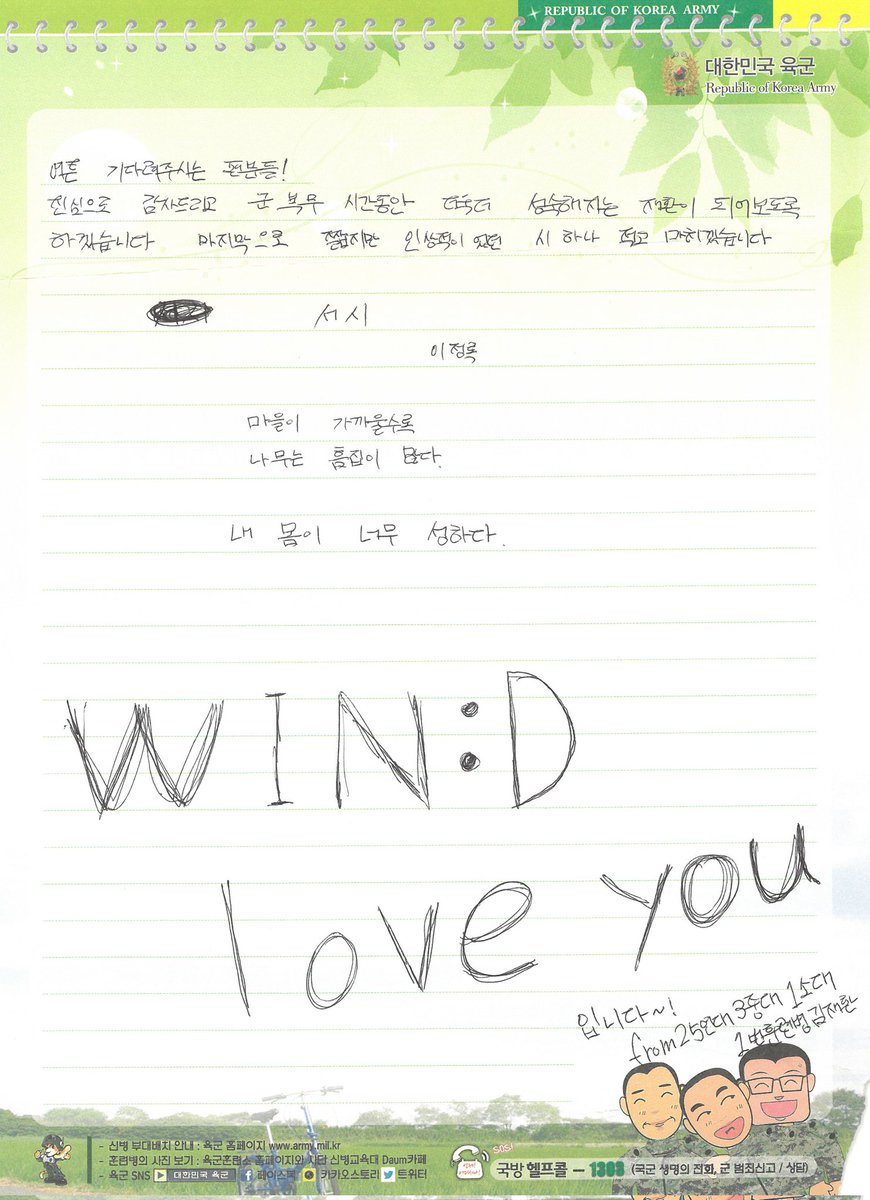 REPUBLIC OF KOREA ARMY
대한민국 육군
Republic of Korea Army
여튼 기다려주시는 팬분들!
진심으로 감사드리고 군 복무 시간동안 더욱더 성숙해지는 재환이 되어보도록
하겠습니다 마지막으로 짧지만 인상적이 었던 시 하나 적고 마치겠습니다
서시
이정록
마을이 가까울수록
나무는 흠집이 많다.
내 몸이 너무 성하다.
WIN:D
love you
입니다~!
from 25연대 3중대 1소대
1번훈련병 김재환
- 신병 부대배치 안내 : 육군 홈페이지 www.army.mil.kr
- 훈련병의 사진 보기 : 육군훈련소 홈페이지와 사단 신병교육대 Daum카페
- 육군 SNS 대한민국 육군 페이스북 카카오스토리 트위터
SOS!
국방헬프콜 - 1303 (국군 생명의 전화, 군 범죄신고 / 상담)